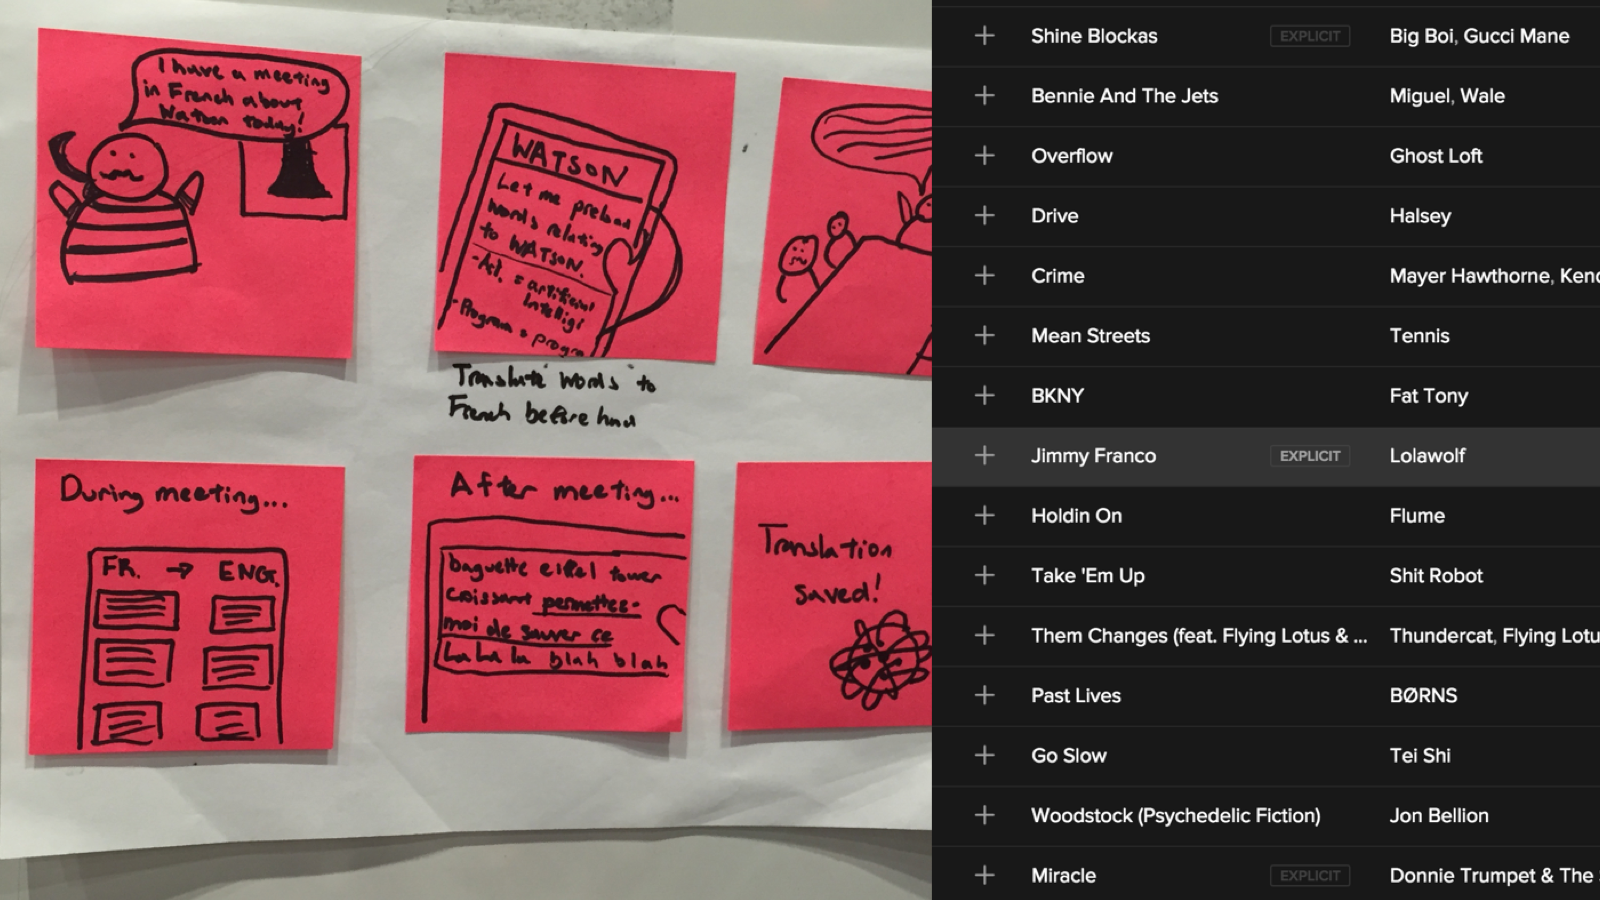 I have a meeting
in French about
Watson today!
WATSON
Let me preload
words relating
to WATSON.
-A.I. = artificial
Intelligi
-Program = progra
Translate words to
French before hand
During meeting...
FR. → ENG.
After meeting...
baguette eiffel tower
croissant permettez-
moi de sauver ce
La La la blah blah
Translation
saved!
Shine Blockas EXPLICIT Big Boi, Gucci Mane
Bennie And The Jets Miguel, Wale
Overflow Ghost Loft
Drive Halsey
Crime Mayer Hawthorne, Kend
Mean Streets Tennis
BKNY Fat Tony
Jimmy Franco EXPLICIT Lolawolf
Holdin On Flume
Take 'Em Up Shit Robot
Them Changes (feat. Flying Lotus & ... Thundercat, Flying Lotu
Past Lives BØRNS
Go Slow Tei Shi
Woodstock (Psychedelic Fiction) Jon Bellion
Miracle EXPLICIT Donnie Trumpet & The